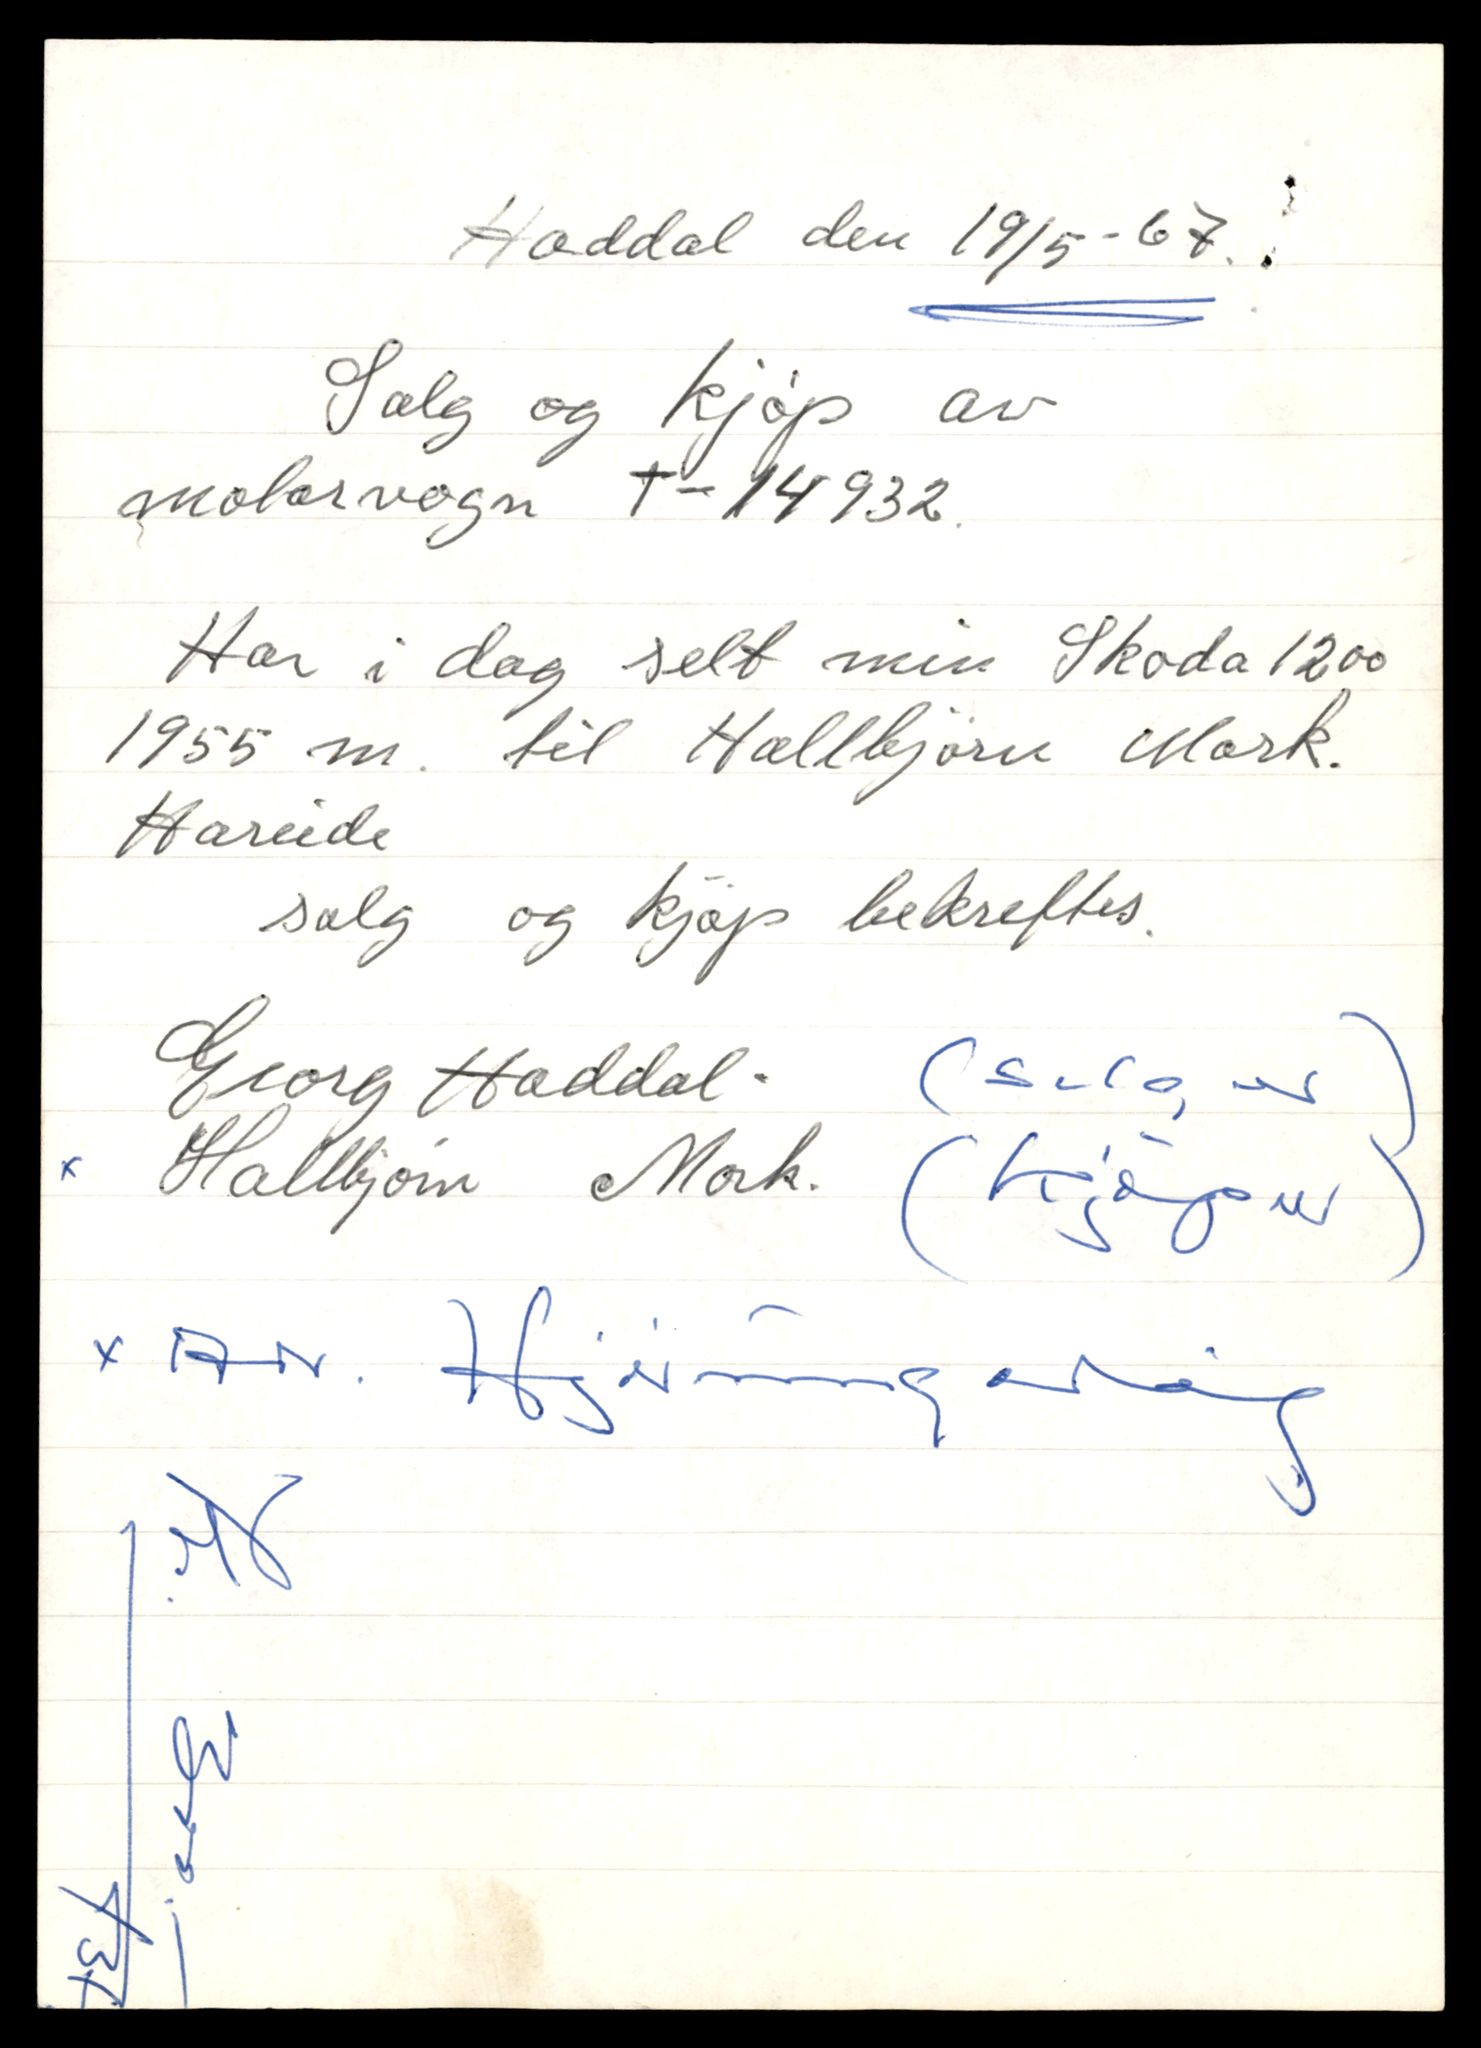 Haddal den 19/5-67.
Salg og kjøp av
motorvogn T-14932.
Har i dag selt min Skoda 1200
1955 m. til Hallbjørn Mork.
Hareide
salg og kjøp bekreftes.
Georg Haddal. (selger)
x Hallbjørn Mork. (kjøper)
x Adr. Hjørungavåg